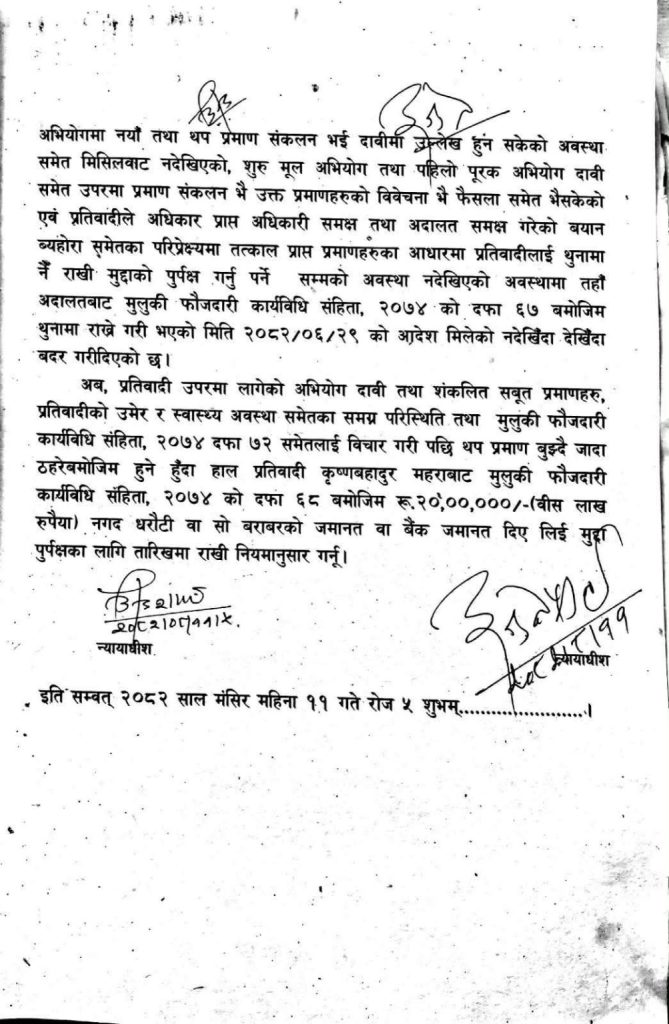 अभियोगमा नयाँ तथा थप प्रमाण संकलन भई दावीमा उल्लेख हुन सकेको अवस्था
समेत मिसिलवाट नदेखिएको, शुरु मूल अभियोग तथा पहिलो पूरक अभियोग दावी
समेत उपरमा प्रमाण संकलन भै उक्त प्रमाणहरुको विवेचना भै फैसला समेत भैसकेको
एवं प्रतिवादीले अधिकार प्राप्त अधिकारी समक्ष तथा अदालत समक्ष गरेको बयान
ब्यहोरा सुमेतका परिप्रेक्ष्यमा तत्काल प्राप्त प्रमाणहरुका आधारमा प्रतिवादीलाई थुनामा
नैं राखी मुद्दाको पुर्पक्ष गर्नु पर्ने सम्मको अवस्था नदेखिएको अवस्थामा तहाँ
अदालतबाट मुलुकी फौजदारी कार्यविधि संहिता, २०७४ को दफा ६७ बमोजिम
थुनामा राख्ने गरी भएको मिति २०८२/०६/२९ को आदेश मिलेको नदेखिँदा देखिँदा
बदर गरीदिएको छ।
अब, प्रतिवादी उपरमा लागेको अभियोग दावी तथा शंकलित सबूत प्रमाणहरु,
प्रतिवादीको उमेर र स्वास्थ्य अवस्था समेतका समग्र परिस्थिति तथा मुलुकी फौजदारी
कार्यविधि संहिता, २०७४ दफा ७२ समेतलाई विचार गरी पछि थप प्रमाण बुझ्दै जादा
ठहरेबमोजिम हुने हुँदा हाल प्रतिवादी कृष्णबहादुर महराबाट मुलुकी फौजदारी
कार्यविधि संहिता, २०७४ को दफा ६८ बमोजिम रू.२०,००,०००/-(वीस लाख
रुपैया) नगद धरौटी वा सो बराबरको जमानत वा बैंक जमानत दिए लिई मुद्दा
पुर्पक्षका लागि तारिखमा राखी नियमानुसार गर्नू।
न्यायाधीश
न्यायाधीश
इति सम्वत् २०८२ साल मंसिर महिना ११ गते रोज ५ शुभम्........................।